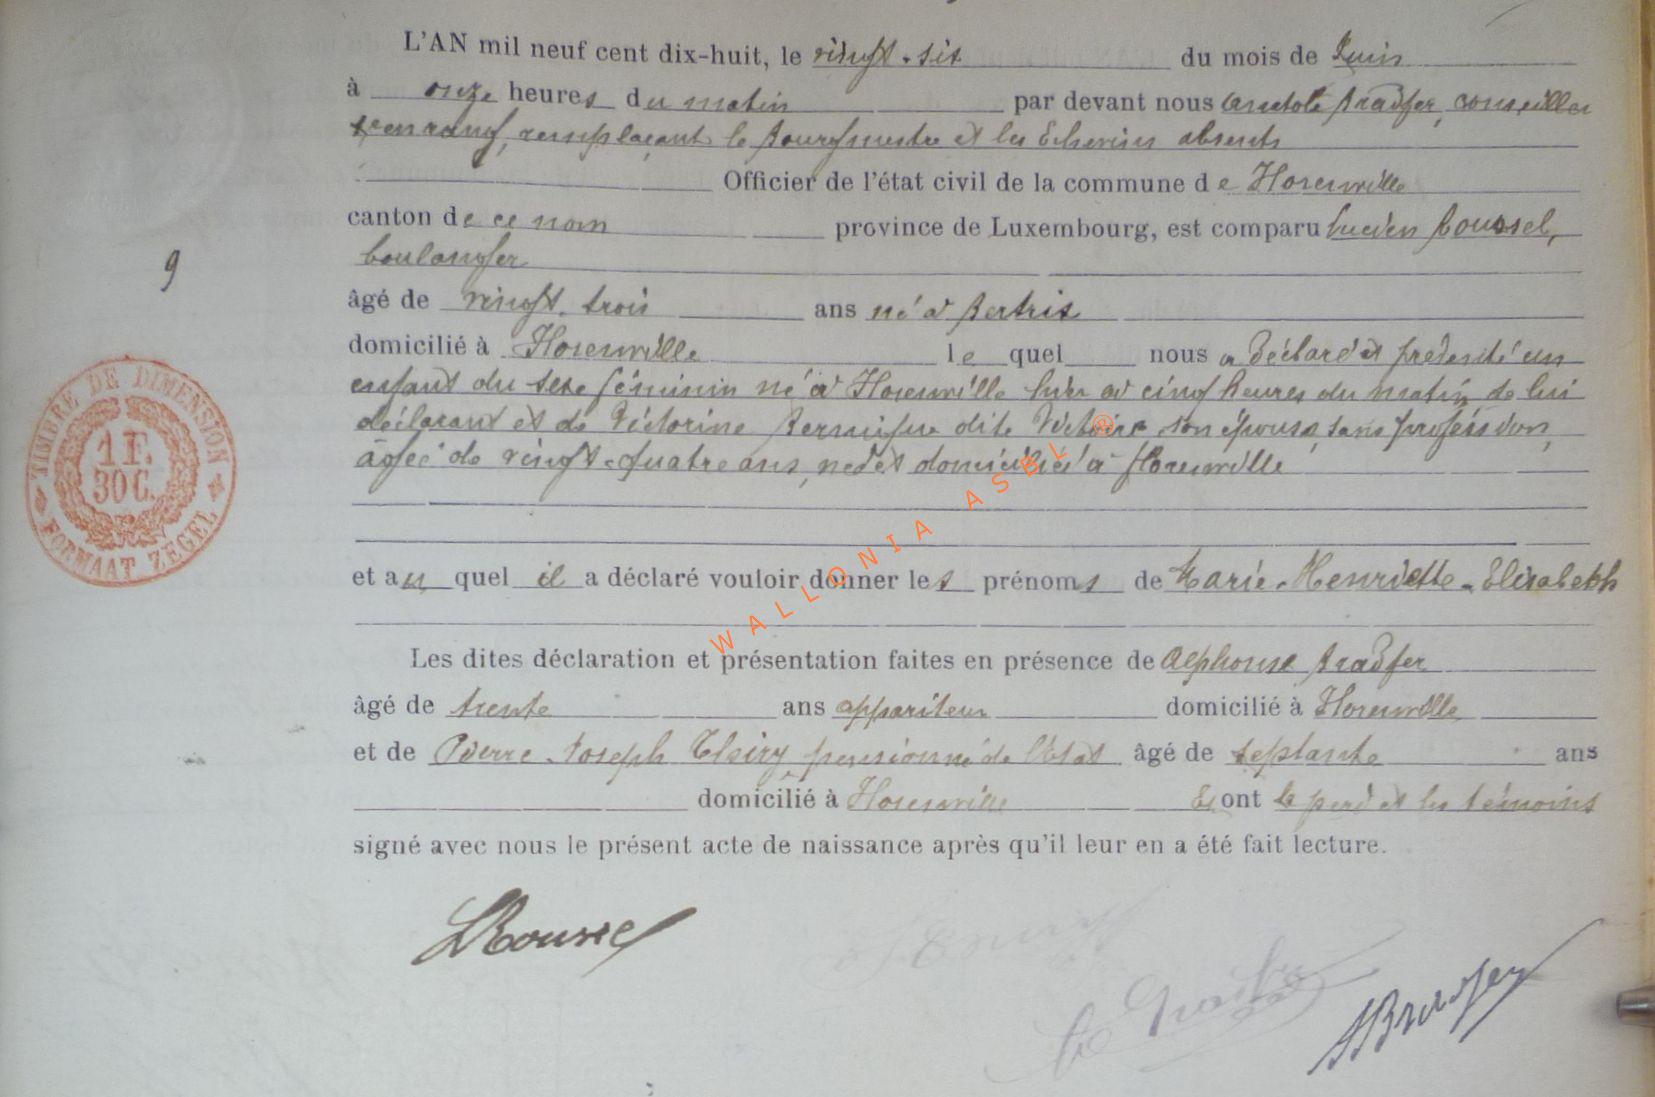 L'AN mil neuf cent dix-huit, le vingt-six du mois de Juin
à onze heures du matin par devant nous Anatole Bradfer, conseiller
en rang, remplaçant le Bourgmestre et les Echevins absents
Officier de l'état civil de la commune de Florenville
canton de ce nom province de Luxembourg, est comparu Lucien Roussel,
boulanger
9
âgé de vingt-trois ans né à Bertrix
domicilié à Florenville lequel nous a déclaré et présenté un
enfant du sexe féminin né à Florenville hier à cinq heures du matin de lui
déclarant et de Victorine dite Victoire son épouse, sans profession,
âgée de vingt-quatre ans, née et domiciliée à Florenville
et auquel il a déclaré vouloir donner les prénoms de Marie-Henriette-Elisabeth
Les dites déclaration et présentation faites en présence de Alphonse Bradfer
âgé de trente ans appariteur domicilié à Florenville
et de Pierre-Joseph Thiry pensionné de l'Etat âgé de septante ans
domicilié à Florenville Et ont le père et les témoins
signé avec nous le présent acte de naissance après qu'il leur en a été fait lecture.
TIMBRE DE DIMENSION
1 F.
30 C.
FORMAAT ZEGEL
WALLONIA ASBL ®
LRoussel
ABradfer